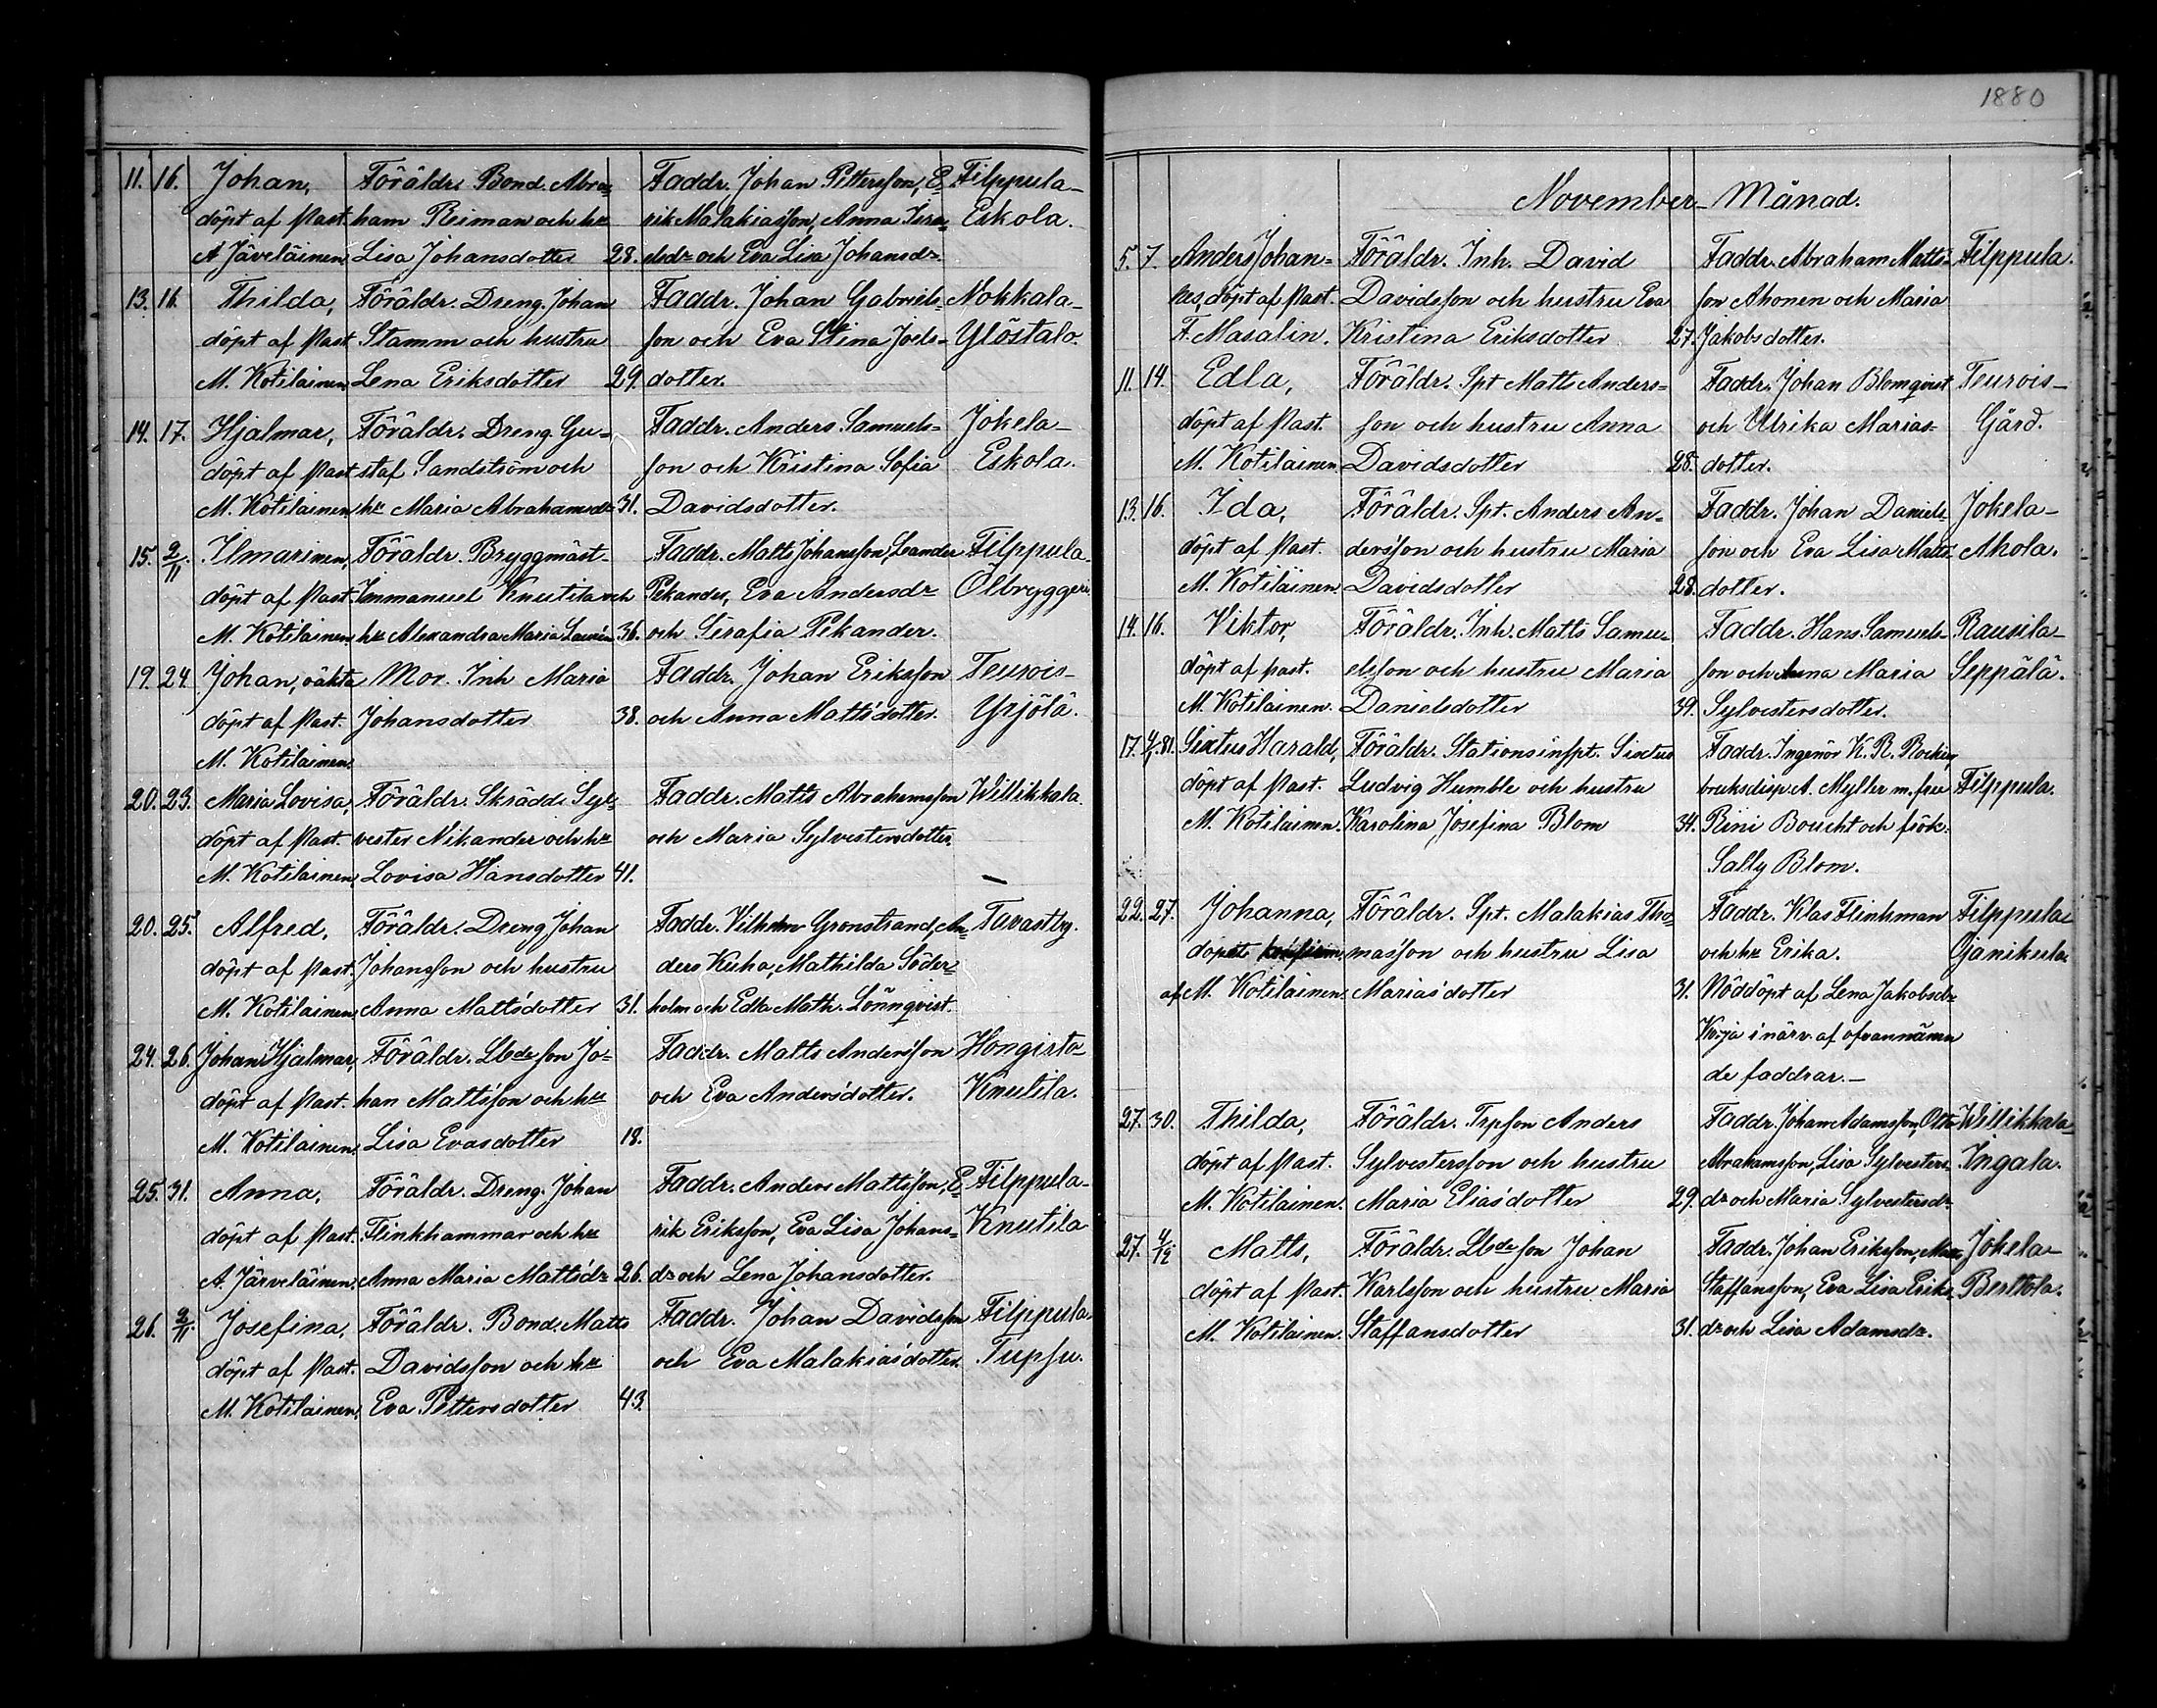 11. 16. Johan, Föräldr. Bond. Abra= Faddr. Johan Pettersson, E= Filppula-
döpt af Past. ham Reiman och hu rik Malakiasson, Anna Isra= Eskola.
A Jäveläinen Lisa Johansdotter 28. elsdr och Eva Lisa Johansdr
13. 16. Thilda, Föräldr. Dreng. Johan Faddr. Johan Gabriels= Nokkala-
döpt af Past Stamm och hustru son och Eva Stina Joels= Ylöstalo.
M. Kotilainen Lena Eriksdotter 29. dotter.
14. 17. Hjalmar, Föräldr. Dreng. Gu= Faddr. Anders Samuels= Jokela-
döpt af Past staf Sandström och son och Kristina Sofia Eskola.
M. Kotilainen hu Maria Abrahamsdr 31. Davidsdotter.
15. 2/11. Ilmarinen, Föräldr. Bryggmäst- Faddr. Matts Johansson, Leander Filppula-
döpt af Past. Immanuel Knutila och Pekander, Eva Andersdr Ölbryggeri
M. Kotilainen. hu Alexandra Maria Laurén 36. och Serafia Pekander.
19. 24. Johan, oäkta Mor. Inh Maria Faddr. Johan Eriksson Teurois-
döpt af Past. Johansdotter 38. och Anna Mattsdotter. Yrjölä.
M. Kotilainen.
20. 23. Maria Lovisa, Föräldr. Skrädd. Syl= Faddr. Matts Abrahamsson Willikkala.
döpt af Past. vester Nikander och hu och Maria Sylvestersdotter.
M. Kotilainen, Lovisa Hansdotter 41.
20. 25. Alfred, Föräldr. Dreng Johan Faddr. Vilhelm Grönstrand, An= Tavastby.
döpt af Past. Johansson och hustru ders Kuha, Mathilda Söder=
M. Kotilainen, Anna Mattsdotter 31. holm och Edla Math. Lönnqvist.
24. 26. Johan Hjalmar, Föräldr. Lbdeson Jo= Faddr. Matts Andersson Hongisto-
döpt af Past. han Mattsson och hu och Eva Andersdotter. Knutila.
M. Kotilainen, Lisa Evasdotter 18.
25. 31. Anna, Föräldr. Dreng. Johan Faddr. Anders Mattsson, E= Filppula-
döpt af Past. Flinkhammar och hu rik Eriksson, Eva Lisa Johans= Knutila
A. Järveläinen. Anna Maria Mattsdr 26. dr och Lena Johansdotter.
26. 2/11. Josefina, Föräldr. Bond. Matts Faddr. Johan Davidsson Filppula-
döpt af Past. Davidsson och hu och Eva Malakiasdotter. Tupsu.
M. Kotilainen, Eva Pettersdotter 43.
1880
November Månad.
5. 7. Anders Johan= Föräldr. Inh. David Faddr. Abraham Matts= Filppula.
nes, döpt af Past. Davidsson och hustru Eva son Ahonen och Maria
F. Masalin. Kristina Eriksdotter 27. Jakobsdotter.
11. 14. Edla, Föräldr. Spt Matts Anders= Faddr. Johan Blomqvist Teurois-
döpt af Past. son och hustru Anna och Ulrika Marias= Gård.
M. Kotilainen. Davidsdotter 28. dotter.
13. 16. Ida, Föräldr. Spt. Anders An= Faddr. Johan Daniels= Jokela-
döpt af Past. dersson och hustru Maria son och Eva Lisa Matts= Ahola.
M. Kotilainen. Davidsdotter 28. dotter.
14. 16. Viktor, Föräldr. Inh. Matts Samu= Faddr. Hans Samuels= Rausila-
döpt af past. elsson och hustru Maria son och Anna Maria Seppälä.
M. Kotilainen. Danielsdotter 39. Sylvestersdotter.
17. 4/1 81. Sixtus Harald, Föräldr. Stationsinspt. Sixtus Faddr. Ingenör K. R.
döpt af Past. Ludvig Humble och hustru bruksdisp. A. Myller m. fru Filppula.
M. Kotilainen. Karolina Josefina Blom 34. Rini Boucht och frök.
Sally Blom.
22. 27. Johanna, Föräldr. Spt. Malakias Tho= Faddr. Klas Flinkman Filppula-
döpt masson och hustru Lisa och hu Erika. Ojanikula.
af M. Kotilainen. Mariasdotter 31. Nöddöpt af Lena Jakobsdr
Korja i närv. af ofvannämn
de faddrar.-
27. 30. Thilda, Föräldr. Trpson Anders Faddr. Johan Adamsson, Otto Willikkala-
döpt af Past. Sylvestersson och hustru Abrahamsson, Lisa Sylvesters= Ingala.
M. Kotilainen. Maria Eliasdotter 29. dr och Maria Sylvestersdr
27. 4/12 Matts, Föräldr. Lbdeson Johan Faddr. Johan Eriksson, Matts Jokela-
döpt af Past. Karlsson och hustru Maria Staffansson, Eva Lisa Eriks= Berttola.
M. Kotilainen. Staffansdotter 31. dr och Lisa Adamsdr.